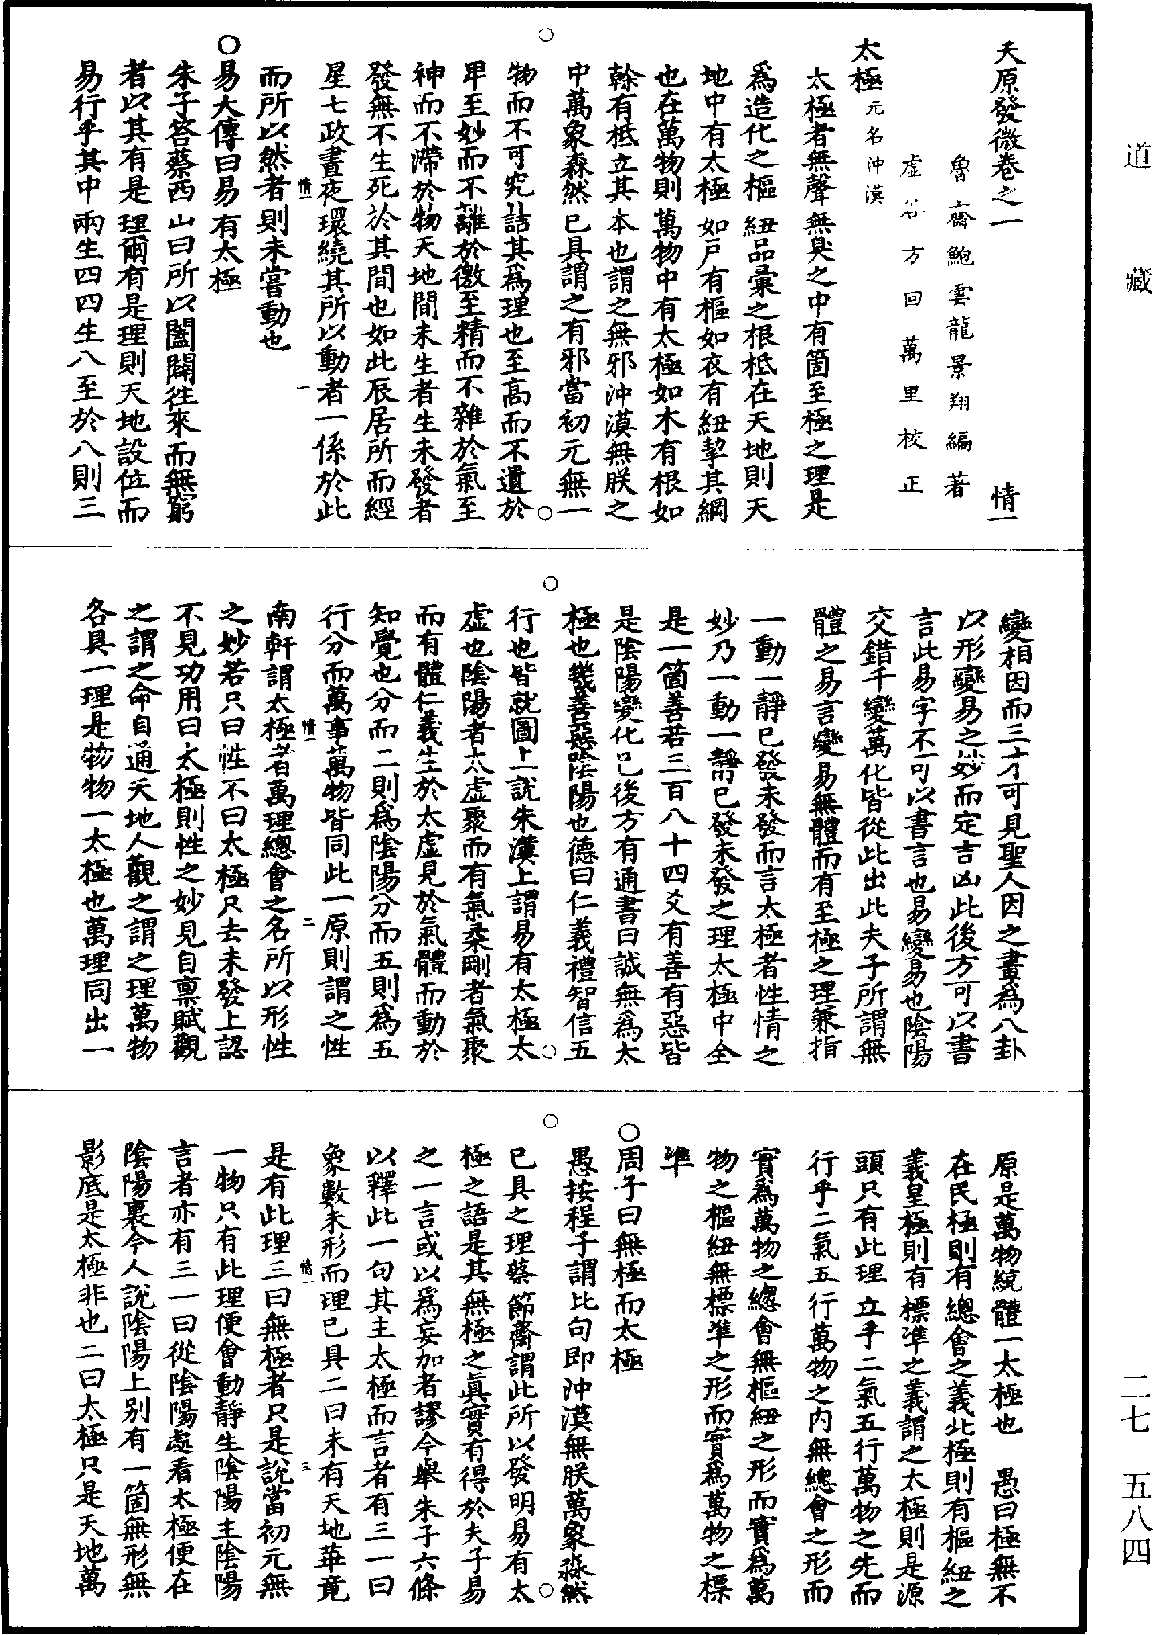 道藏
二七 五八四
天原發微卷之一 情一
魯齋鮑雲龍景翔編著
虛谷方回萬里校正
太極 元名沖漠
太極者無聲無臭之中有箇至極之理是
爲造化之樞紐品彙之根柢在天地則天
地中有太極如戸有樞如衣有紐挈其綱
也在萬物則萬物中有太極如木有根如
榦有柢立其本也謂之無邪沖漠無朕之
中萬象森然已具謂之有邪當初元無一
物而不可究詰其爲理也至高而不遺於
卑至妙而不離於徼至精而不雜於氣至
神而不滯於物天地間未生者生未發者
發無不生死於其間也如此辰居所而經
星七政晝夜環繞其所以動者一係於此
情一 一
而所以然者則未嘗動也
○易大傳曰易有太極
朱子答蔡西山曰所以闔闢往來而無窮
者以其有是理爾有是理則天地設位而
易行乎其中兩生四四生八至於八則三
變相因而三才可見聖人因之畫爲八卦
以形變易之妙而定吉凶此後方可以書
言此易字不可以書言也易變易也陰陽
交錯千變萬化皆從此出此夫子所謂無
體之易言變易無體而有至極之理兼指
一動一靜已發未發而言太極者性情之
妙乃一動一靜已發未發之理太極中全
是一箇善若三百八十四爻有善有惡皆
是陰陽變化已後方有通書曰誠無爲太
極也幾善惡陰陽也德曰仁義禮智信五
行也皆就圖上說朱漢上謂易有太極太
虛也陰陽者太虛聚而有氣柔剛者氣聚
而有體仁義生於太虛見於氣體而動於
知覺也分而二則爲陰陽分而五則爲五
行分而萬事萬物皆同此一原則謂之性
情一 二
南軒謂太極者萬理總會之名所以形性
之妙若只曰性不曰太極只去未發上認
不見功用曰太極則性之妙見自稟賦觀
之謂之命自通天地人觀之謂之理萬物
各具一理是物物一太極也萬理同出一
原是萬物統體一太極也 愚曰極無不
在民極則有總會之義北極則有樞紐之
義皇極則有標準之義謂之太極則是源
頭只有此理立乎二氣五行萬物之先而
行乎二氣五行萬物之内無總會之形而
實爲萬物之總會無樞紐之形而實爲萬
物之樞紐無標準之形而實爲萬物之標
準
○周子曰無極而太極
愚按程子謂此句即沖漠無朕萬象森然
已具之理蔡節齋謂此所以發明易有太
極之語是其無極之眞實有得於夫子易
之一言或以爲妄加者謬今舉朱子六條
以釋此一句其主太極而言者有三一曰
象數未形而理已具二曰未有天地畢竟
情一 三
是有此理三曰無極者只是說當初元無
一物只有此理便會動靜生陰陽主陰陽
言者亦有三一曰從陰陽處看太極便在
陰陽裏今人說陰陽上別有一箇無形無
影底是太極非也二曰太極只是天地萬